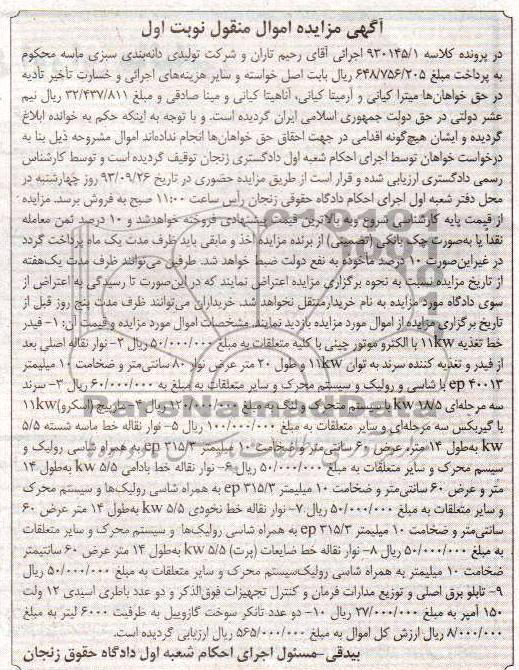 آگهی مزایده اموال منقول نوبت اول
در پرونده کلاسه ۹۳۰۱۴۵/۱ اجرائی آقای رحیم تاران و شرکت تولیدی دانه‌بندی سبزی ماسه محکوم
به پرداخت مبلغ ۶۴۸/۷۵۶/۲۰۵ ریال بابت اصل خواسته و سایر هزینه‌های اجرائی و خسارت تأخیر تأدیه
در حق خواهان‌ها میترا کیانی و آرمیتا کیانی، آناهیتا کیانی و مینا صادقی و مبلغ ۳۲/۴۳۷/۸۱۱ ریال نیم
عشر دولتی در حق دولت جمهوری اسلامی ایران گردیده است. و با توجه به اینکه حکم به خوانده ابلاغ
گردیده و ایشان هیچ‌گونه اقدامی در جهت احقاق حق خواهان‌ها انجام نداده‌اند اموال مشروحه ذیل بنا به
درخواست خواهان توسط اجرای احکام شعبه اول دادگستری زنجان توقیف گردیده است و توسط کارشناس
رسمی دادگستری ارزیابی شده و قرار است از طریق مزایده حضوری در تاریخ ۹۳/۰۹/۲۶ روز چهارشنبه در
محل دفتر شعبه اول اجرای احکام دادگاه حقوقی زنجان رأس ساعت ۱۱:۰۰ صبح به فروش برسد. مزایده
از قیمت پایه کارشناسی شروع وبه بالاترین قیمت پیشنهادی فروخته خواهدشد و ۱۰ درصد ثمن معامله
نقداً یا به‌صورت چک بانکی (تضمینی) از برنده مزایده أخذ و مابقی باید ظرف مدت یک ماه پرداخت گردد
در غیراین‌صورت ۱۰ درصد مأخوذه به نفع دولت ضبط خواهد شد. طرفین می‌توانند ظرف مدت یک‌هفته
از تاریخ مزایده نسبت به نحوه برگزاری مزایده اعتراض نمایند که در این‌صورت تا رسیدگی به اعتراض از
سوی دادگاه مورد مزایده به نام خریدارمنتقل نخواهد شد. خریداران می‌توانند ظرف مدت پنج روز قبل از
تاریخ برگزاری مزایده از اموال مورد مزایده بازدید نمایند. مشخصات اموال مورد مزایده و قیمت آن: ۱- فیدر
خط تغذیه ۱۱kw با الکترو موتور چینی با کلیه متعلقات به مبلغ ۵۰/۰۰۰/۰۰۰ ریال ۲- نوار نقاله اصلی بعد
از فیدر و تغذیه کننده سرند به توان ۱۱kw و طول ۲۰ متر عرض نوار ۸۰ سانتی‌متر و ضخامت ۱۰ میلیمتر
ep ۴۰۰۱۳ با شاسی و رولیک و سیستم محرک و سایر متعلقات به مبلغ به ۶۰/۰۰۰/۰۰۰ ریال ۳- سرند
سه مرحله‌ای ۱۸/۵ kw با سیستم متحرک و لنگ به مبلغ ۱۲۰/۰۰۰/۰۰۰ ریال ۴- مارپیچ (اسکرو) ۱۱kw
با گیربکس سه مرحله‌ای و سایر متعلقات به مبلغ ۱۰۰/۰۰۰/۰۰۰ ریال ۵- نوار نقاله خط ماسه شسته ۵/۵
kw به‌طول ۱۴ متر، عرض ۶۰ سانتی‌متر و ضخامت ۱۰ میلیمتر ۳۱۵/۳ ep به همراه شاسی رولیک و
سیسم محرک و سایر متعلقات به مبلغ ۵۰/۰۰۰/۰۰۰ ریال ۶- نوار نقاله خط بادامی ۵/۵ kw به‌طول ۱۴
متر و عرض ۶۰ سانتی‌متر و ضخامت ۱۰ میلیمتر ۳۱۵/۳ ep به همراه شاسی رولیک‌ها و سیستم محرک
و سایر متعلقات به مبلغ ۵۰/۰۰۰/۰۰۰ ریال ۷- نوار نقاله خط نخودی ۵/۵ kw به‌طول ۱۴ متر عرض ۶۰
سانتی‌متر و ضخامت ۱۰ میلیمتر ۳۱۵/۳ ep به همراه شاسی رولیک‌ها و سیستم محرک و سایر متعلقات
به مبلغ ۵۰/۰۰۰/۰۰۰ ریال ۸- نوار نقاله خط ضایعات (پرت) ۵/۵ kw به‌طول ۱۴ متر عرض ۶۰ سانتیمتر
ضخامت ۱۰ میلیمتر به همراه شاسی رولیک‌سیستم محرک و سایر متعلقات به مبلغ ۵۰/۰۰۰/۰۰۰ ریال
۹- تابلو برق اصلی و توزیع مدارات فرمان و کنترل تجهیزات فوق‌الذکر و دو عدد باطری اسیدی ۱۲ ولت
۱۵۰ آمپر به مبلغ ۲۷/۰۰۰/۰۰۰ ریال ۱۰- دو عدد تانکر سوخت گازوییل به ظرفیت ۶۰۰۰ لیتر به مبلغ
۸/۰۰۰/۰۰۰ ریال ارزش کل اموال به مبلغ ۵۶۵/۰۰۰/۰۰۰ ریال ارزیابی گردیده است.
بیدقی-مسئول اجرای احکام شعبه اول دادگاه حقوق زنجان
ParsNamadData